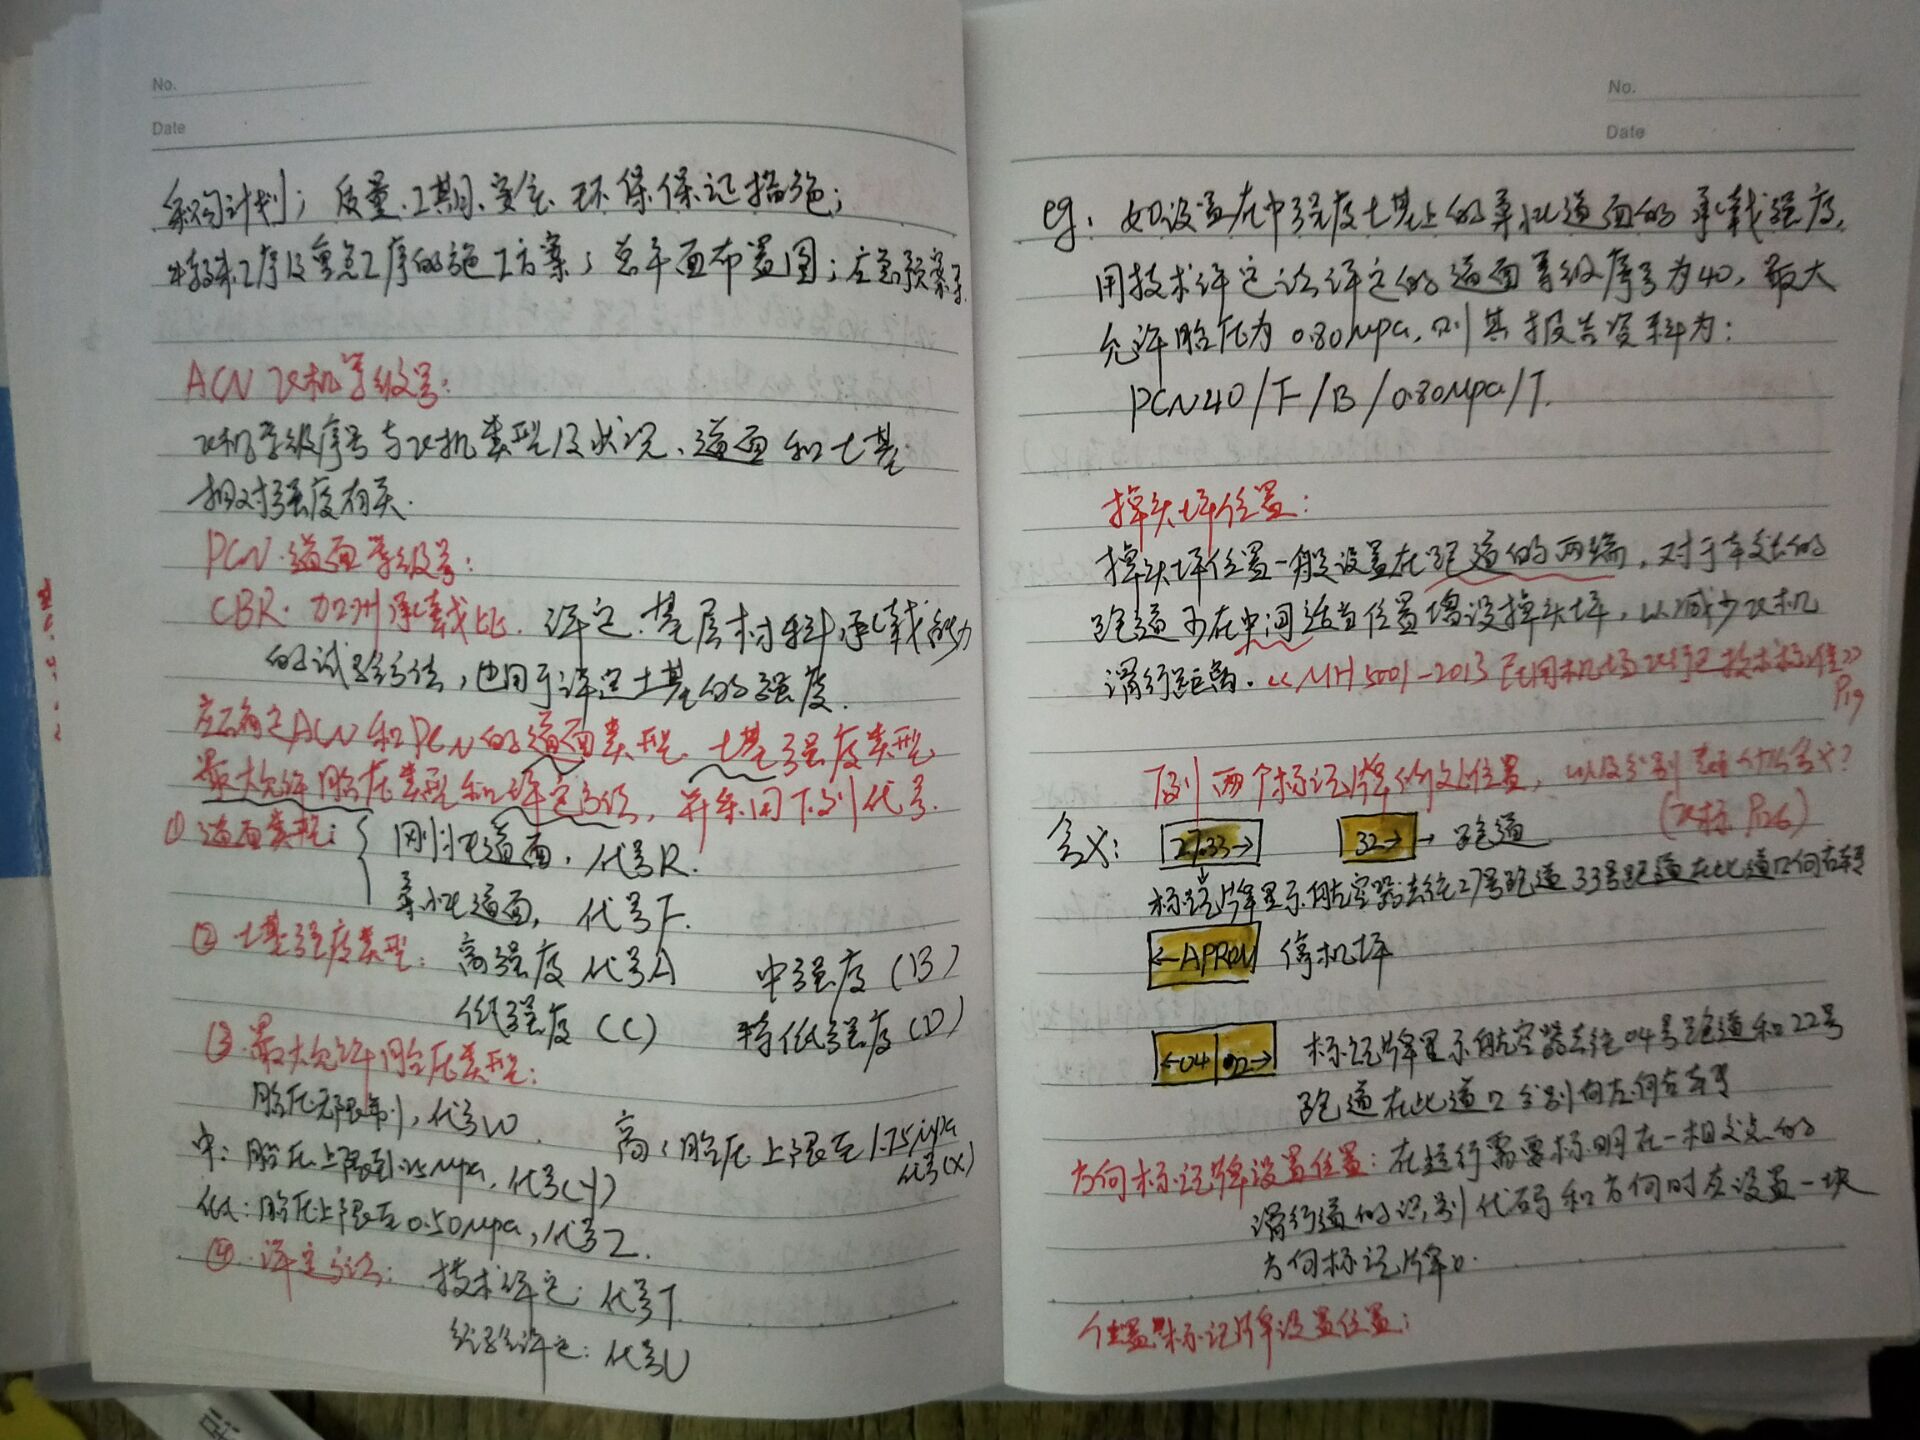 No.
Date
采购计划；质量、工期、安全、环保保证措施；
特殊工序及重点工序的施工方案；总平面布置图；应急预案等
ACN飞机等级号：
飞机等级序号与飞机类型及状况、道面和土基
相对强度有关.
PCN.道面等级号：
CBR.加州承载比. 评定.基层材料承载能力
的试验方法，也用于评定土基的强度.
ACN和PCN的道面类型、土基强度类型
最大允许胎压类型和评定方法，并采用下列代号.
①道面类型： 刚性道面，代号R.
柔性道面，代号F.
②土基强度类型：高强度 代号A 中强度（B）
低强度（C） 特低强度（D）
③.最大允许胎压类型：
胎压无限制，代号W. 高：胎压上限至1.75Mpa
代号(X)
中：胎压上限到1.25Mpa，代号(Y)
低：胎压上限至0.50Mpa，代号Z.
④.评定方法：技术评定：代号T
经验评定：代号U
No.
Date
eg：如设置在中强度土基上的柔性道面的承载强度，
用技术评定法评定的道面等级序号为40，最大
允许胎压为0.80Mpa，则其报告资料为：
PCN40/F/B/0.80Mpa/T.
掉头坪位置：
掉头坪位置一般设置在跑道的两端，对于较长的
跑道可在中间适当位置增设掉头坪，以减少飞机
滑行距离.《MH5001-2013民用机场飞行区技术标准》
P19
下列两个标记牌的位置，以及分别表示什么含义？
（飞标P126）
含义： 27.33→ 32→ →跑道
标记牌里示航空器去往27号跑道33号跑道在此道口向右转
←APRON 停机坪
←04|22→ 标记牌里示航空器去往04号跑道和22号
跑道在此道口分别向左向右转
方向标记牌设置位置：在运行需要标明在一相交点的
滑行道的识别代码和方向时应设置一块
方向标记牌。
位置标记牌设置位置：